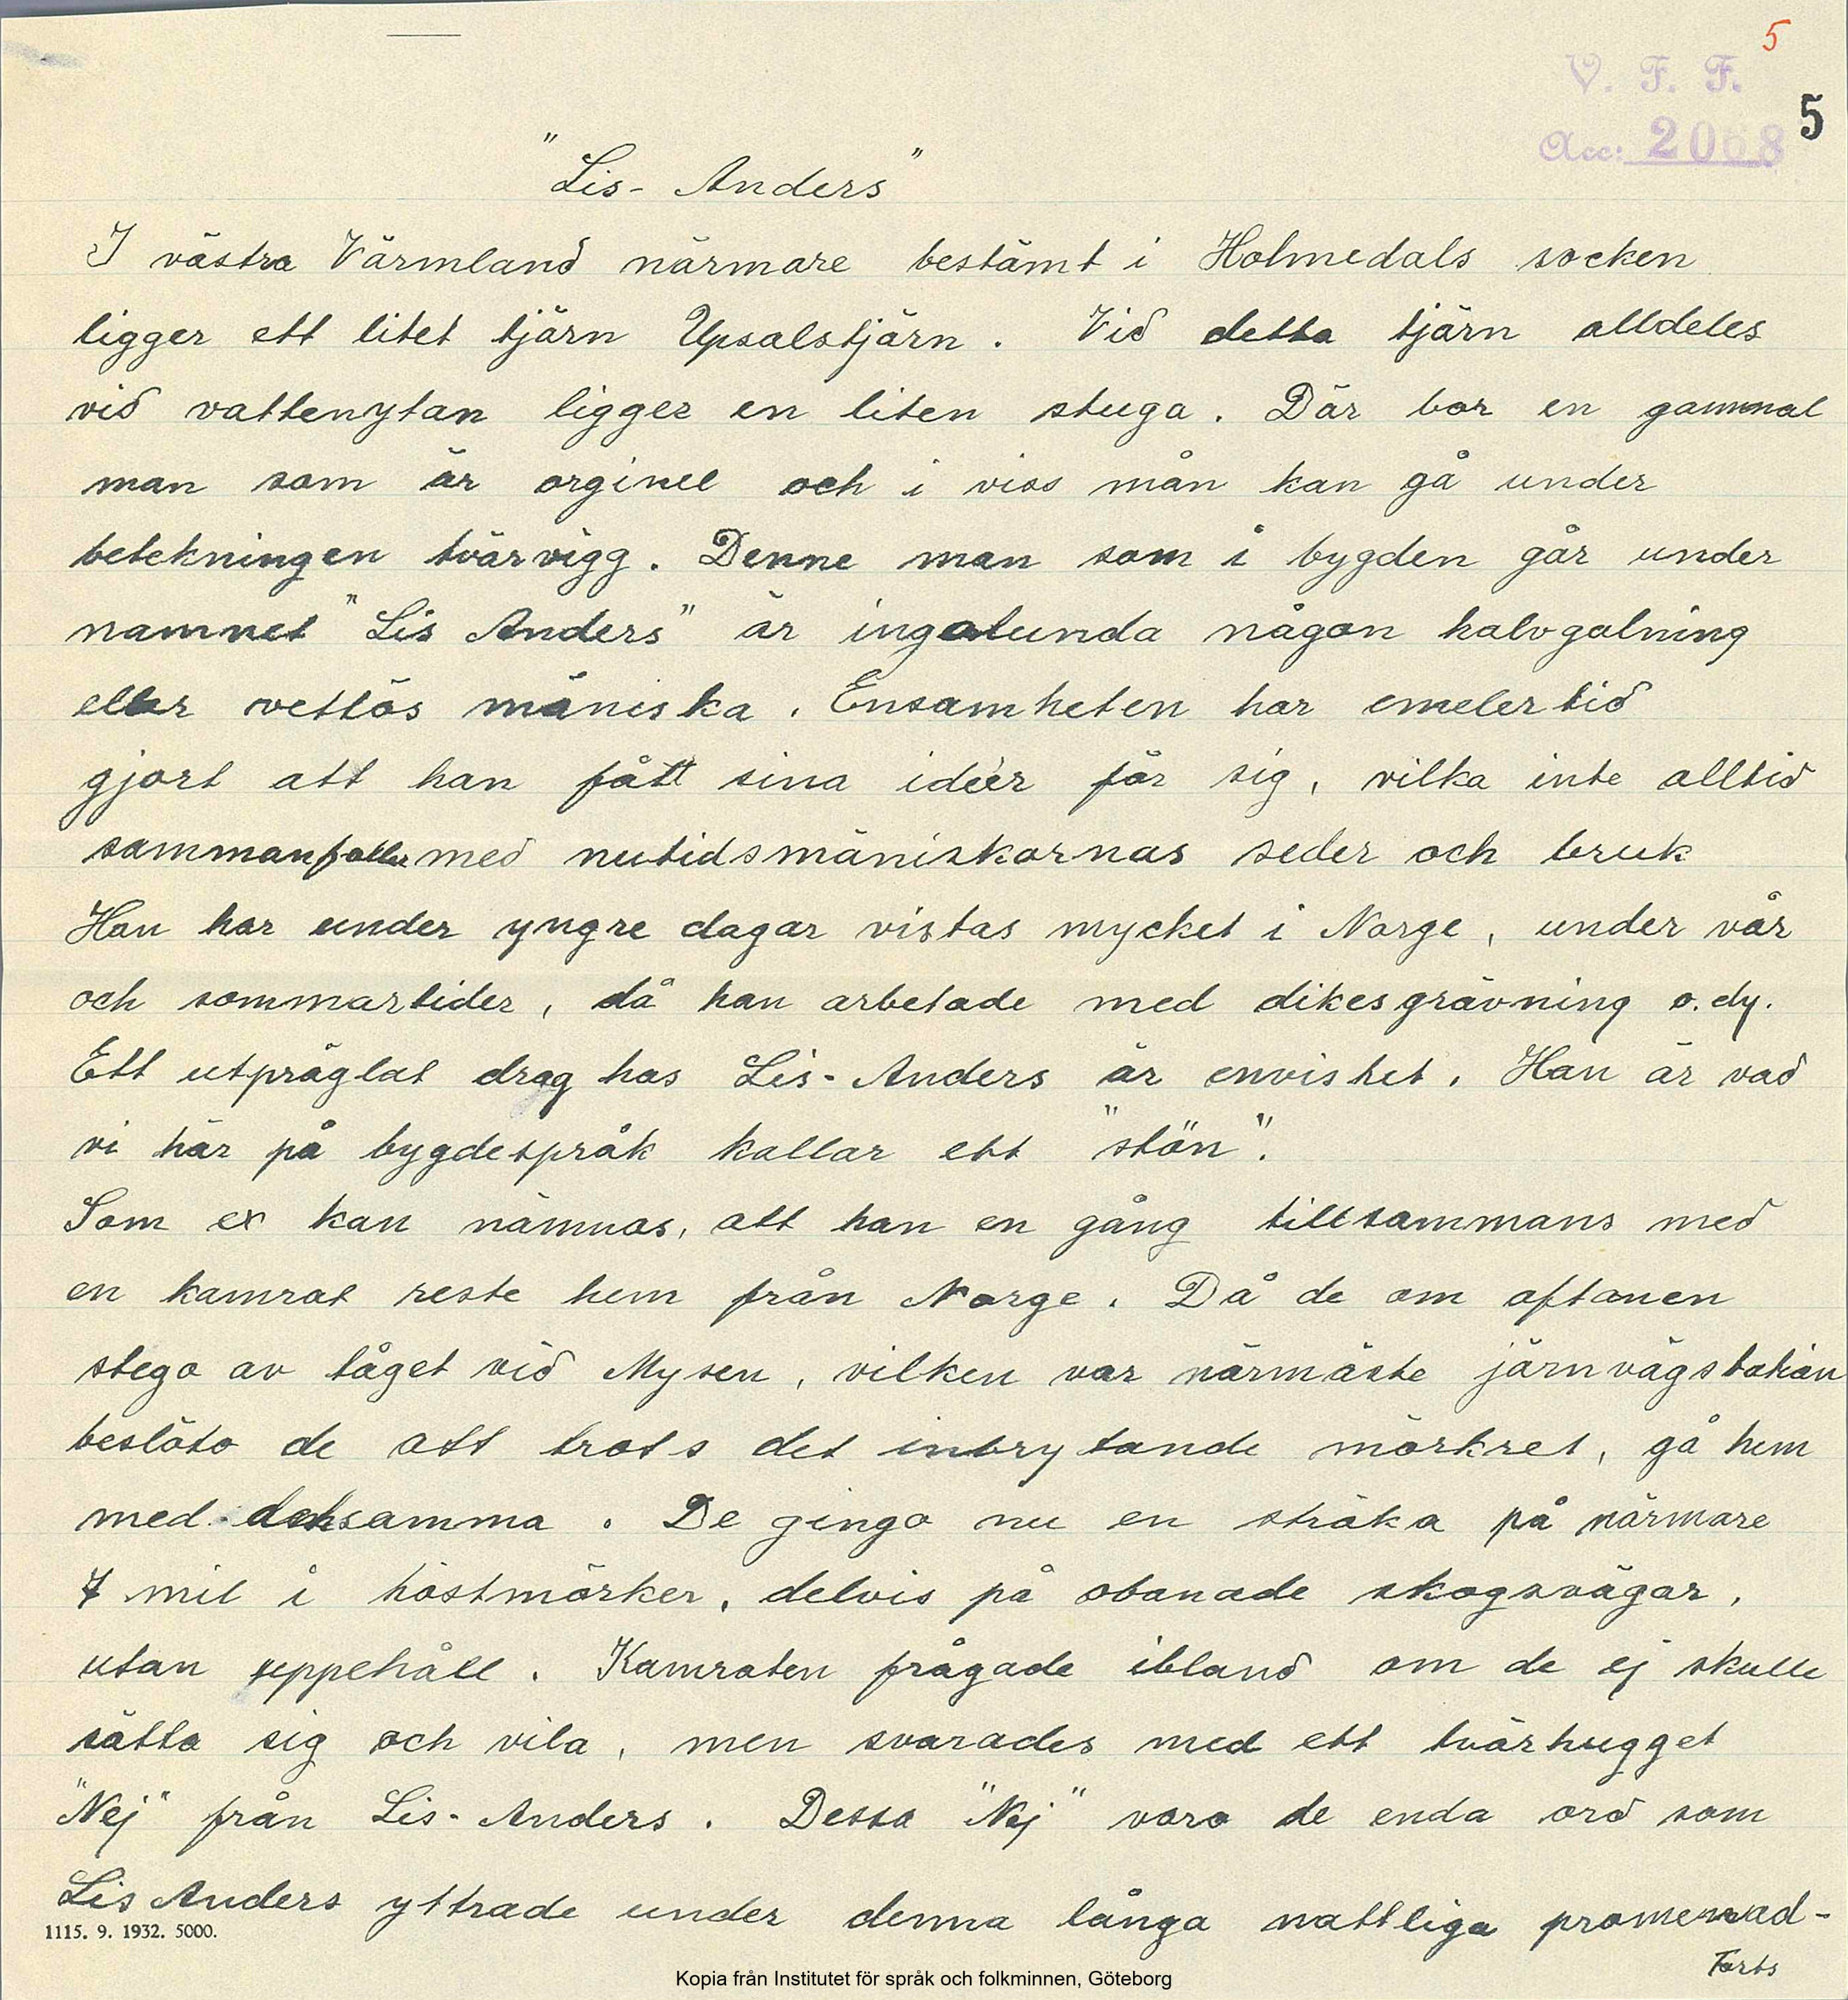 5
V. F. F.
5
Acc: 2068
"Lis- Anders"
I västra Värmland närmare bestämt i Holmedals socken
ligger ett litet tjärn Upsalstjärn. Vid detta tjärn alldeles
vid vattenytan ligger en liten stuga. Där bor en gammal
man som är orginell och i viss mån kan gå under
betekningen tvärvigg. Denne man som i bygden går under
namnet "Lis Anders" är ingalunda någon halvgalning
eller vettlös mäniska. Ensamheten har emelertid
gjort att han fått sina idéer för sig, vilka inte alltid
sammanfaller med nutidsmäniskornas seder och bruk
Han har under yngre dagar vistas mycket i Norge, under vår
och sommartider, då han arbetade med dikesgrävning o. dy.
Ett utpräglat drag hos Lis- Anders är envishet. Han är vad
vi här på bygdespråk kallar ett "stön".
Som ex kan nämnas, att han en gång tillsammans med
en kamrat reste hem från Norge. Då de om aftonen
stego av tåget vid Mysen, vilken var närmäste järnvägstation
beslöto de att trots det inbrytande mörkret, gå hem
med detsamma. De gingo nu en sträka på närmare
7 mil i höstmörker, delvis på obanade skogsvägar,
utan uppehåll. Kamraten frågade ibland om de ej skulle
sätta sig och vila, men svarades med ett tvärhugget
"Nej" från Lis- Anders. Dessa "Nej" voro de enda ord som
Lis Anders yttrade under denna långa nattliga promenad-
1115. 9. 1932. 5000.
Forts
Kopia från Institutet för språk och folkminnen, Göteborg